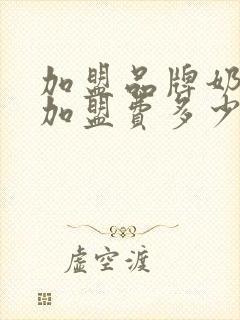 加盟品牌奶
加盟费多少
虚空渡